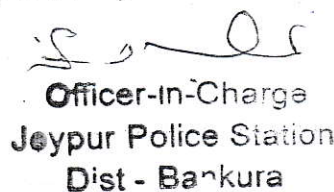 Officer-In-Charge
Joypur Police Station
Dist - Bankura